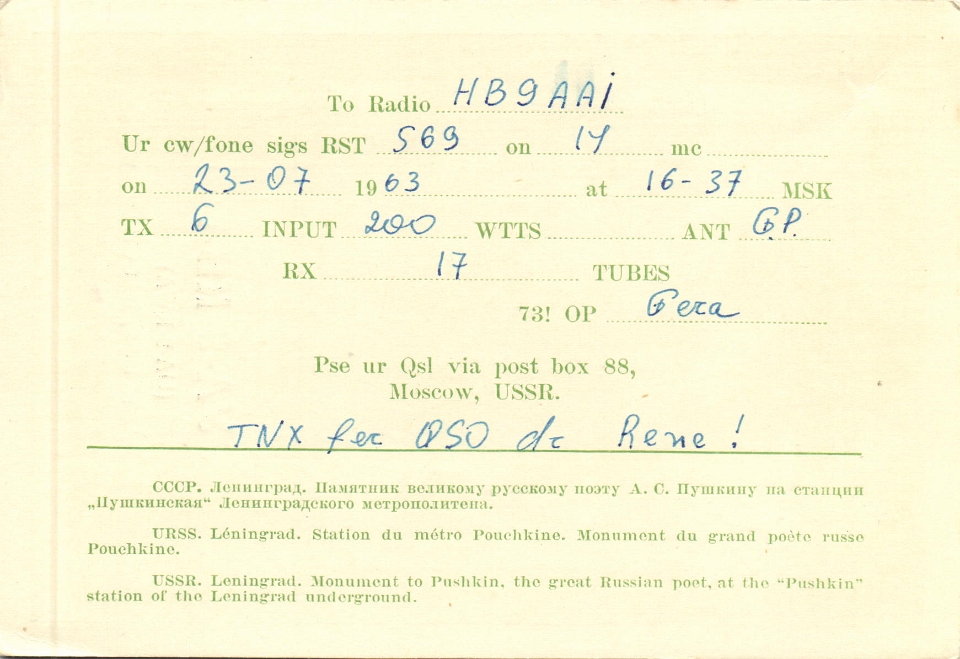 To Radio HB9AAi
Ur cw/fone sigs RST 569 on 14 mc
on 23-07 1963 at 16-37 MSK
TX 6 INPUT 200 WTTS ANT G.P.
RX 17 TUBES
73! OP Gera
Pse ur Qsl via post box 88,
Moscow, USSR.
TNX fer QSO dr Rene!
СССР. Ленинград. Памятник великому русскому поэту А. С. Пушкину на станции
„Пушкинская“ Ленинградского метрополитена.
URSS. Léningrad. Station du métro Pouchkine. Monument du grand poète russe
Pouchkine.
USSR. Leningrad. Monument to Pushkin, the great Russian poet, at the “Pushkin”
station of the Leningrad underground.